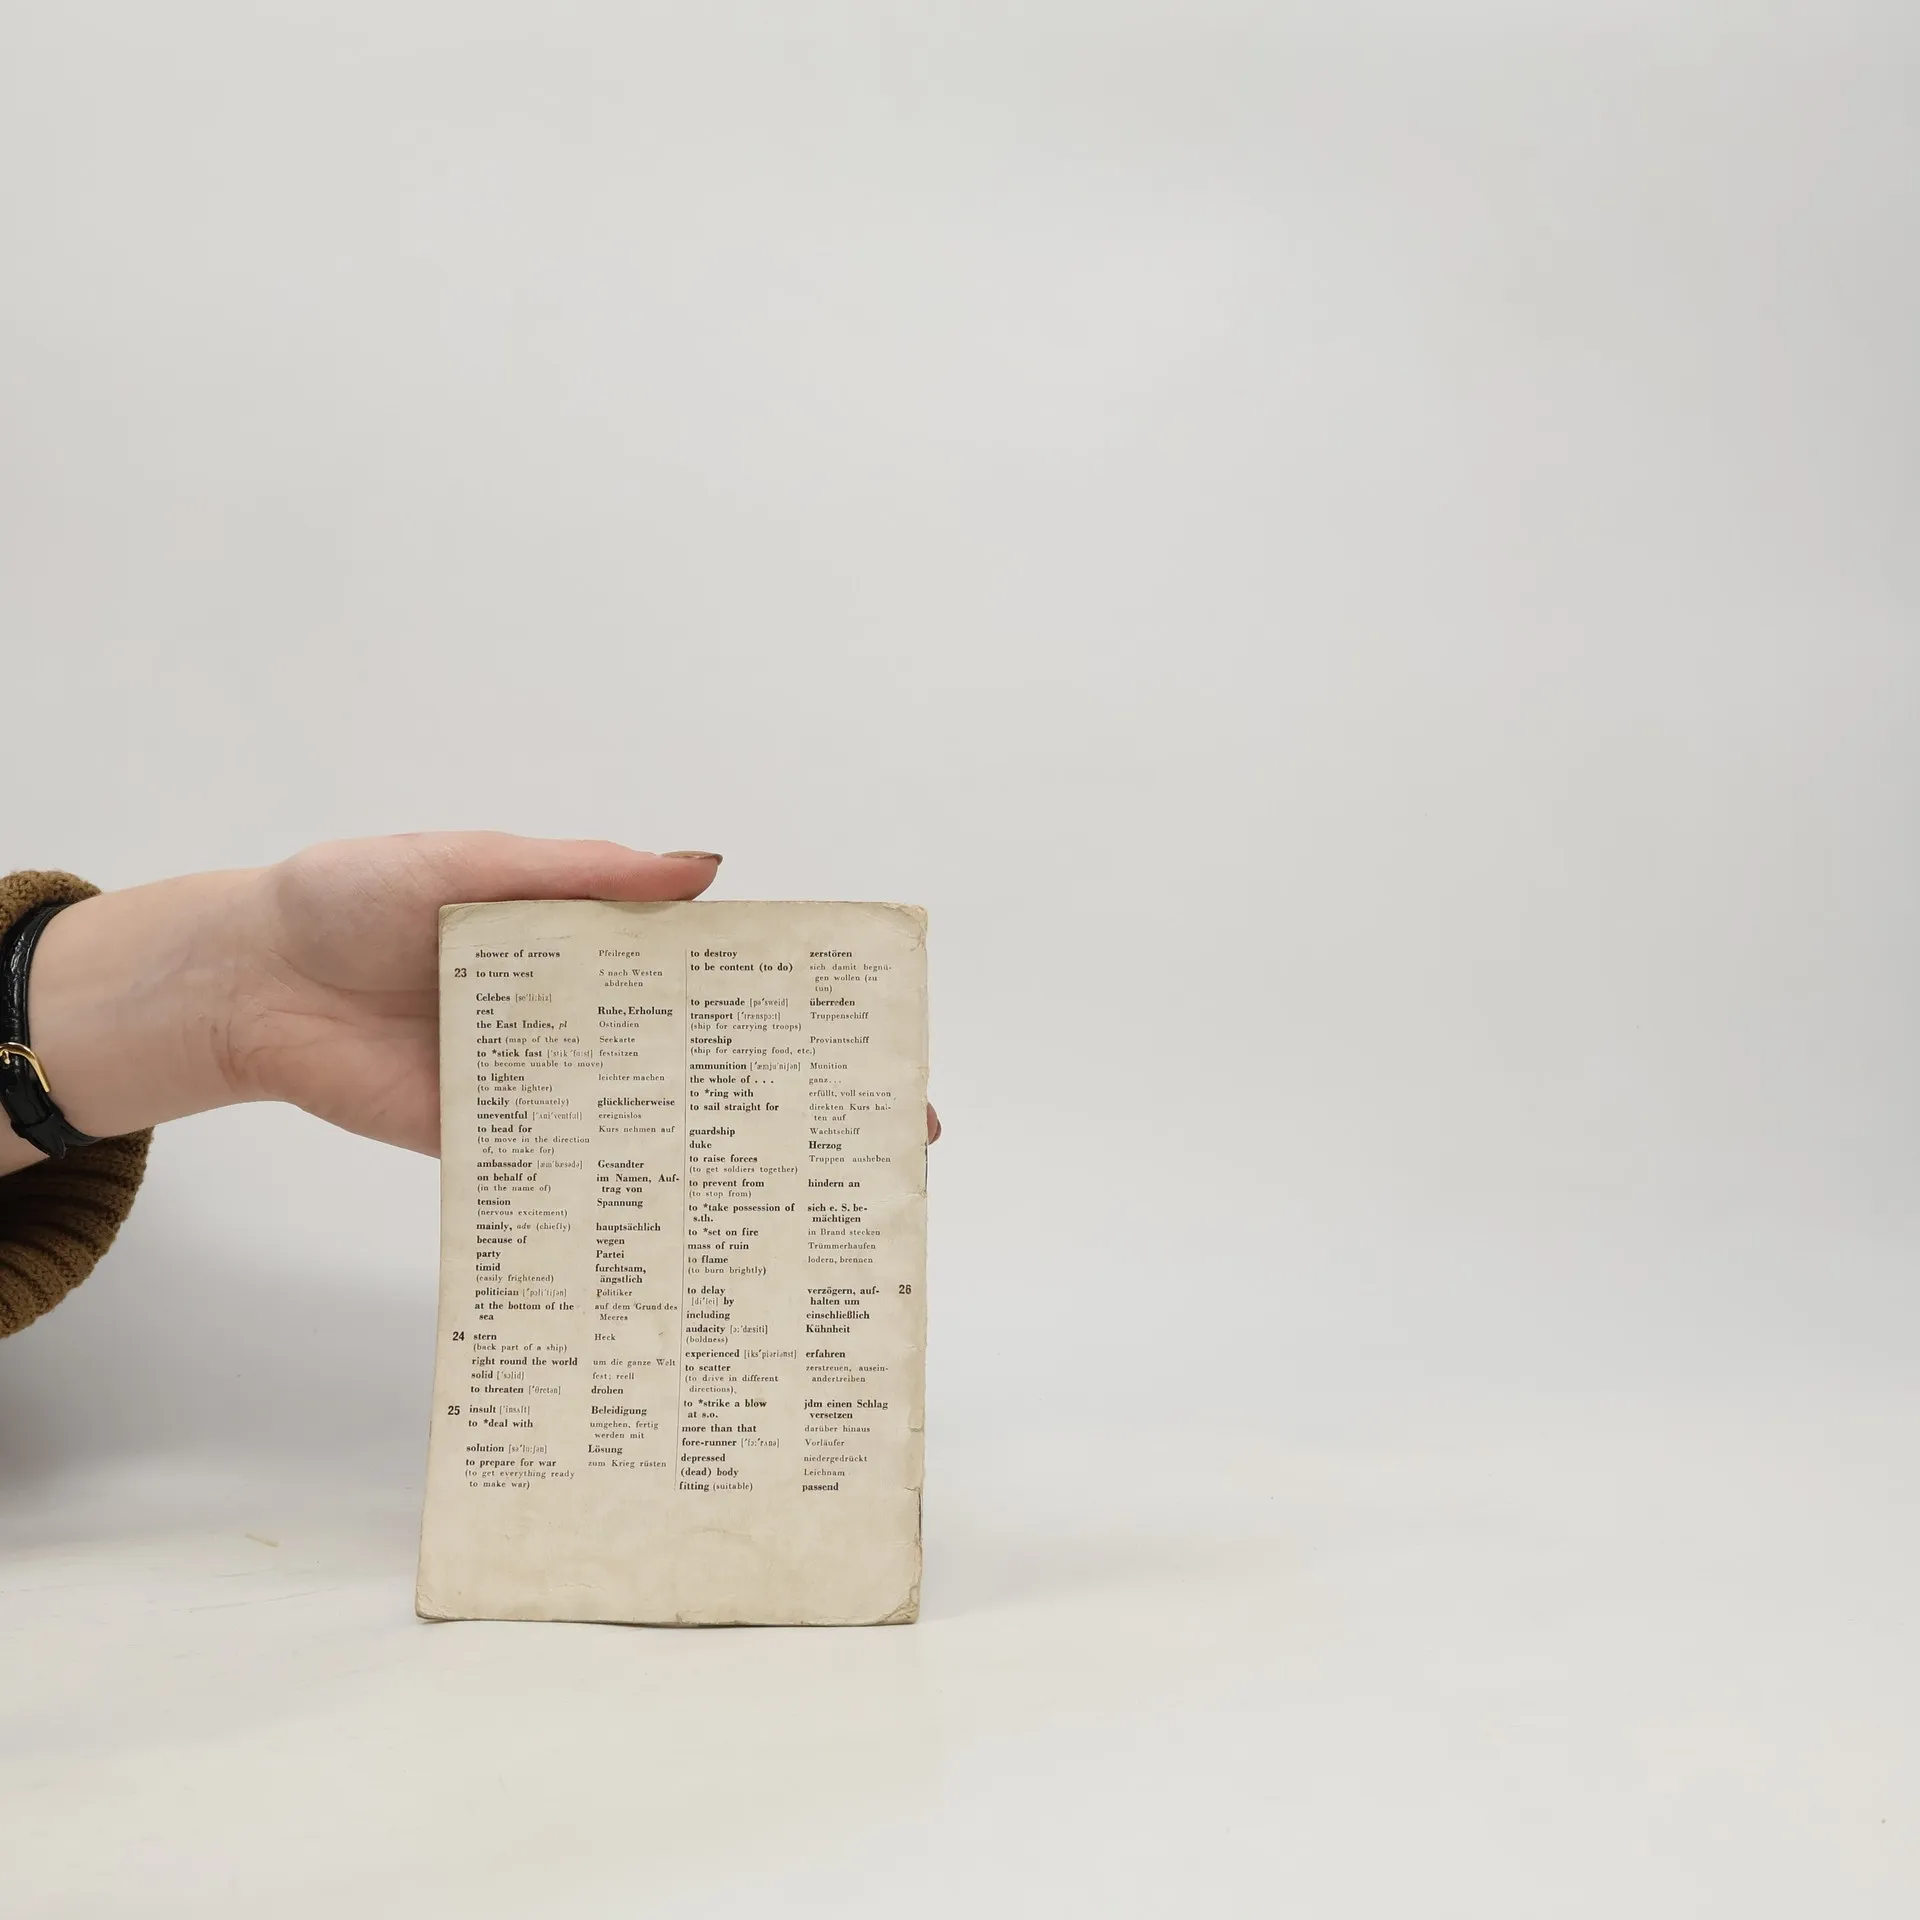 shower of arrows Pfeilregen
23 to turn west S nach Westen
abdrehen
Celebes [se'li:biz]
rest Ruhe, Erholung
the East Indies, pl Ostindien
chart (map of the sea) Seekarte
to *stick fast ['stik 'fɑ:st] festsitzen
(to become unable to move)
to lighten leichter machen
(to make lighter)
luckily (fortunately) glücklicherweise
uneventful ['ʌni'ventful] ereignislos
to head for Kurs nehmen auf
(to move in the direction
of, to make for)
ambassador [æm'bæsədə] Gesandter
on behalf of im Namen, Auf-
(in the name of) trag von
tension Spannung
(nervous excitement)
mainly, adv (chiefly) hauptsächlich
because of wegen
party Partei
timid furchtsam,
(easily frightened) ängstlich
politician [ˈpɔliˈtiʃən] Politiker
at the bottom of the auf dem Grund des
sea Meeres
24 stern Heck
(back part of a ship)
right round the world um die ganze Welt
solid ['sɔlid] fest; reell
to threaten ['θretən] drohen
25 insult ['insʌlt] Beleidigung
to *deal with umgehen, fertig
werden mit
solution [sə'lu:ʃən] Lösung
to prepare for war zum Krieg rüsten
(to get everything ready
to make war)
to destroy zerstören
to be content (to do) sich damit begnü-
gen wollen (zu
tun)
to persuade [pə'sweid] überreden
transport ['trænspɔ:t] Truppenschiff
(ship for carrying troops)
storeship Proviantschiff
(ship for carrying food, etc.)
ammunition ['æmju'niʃən] Munition
the whole of . . . ganz...
to *ring with erfüllt, voll sein von
to sail straight for direkten Kurs hal-
ten auf
guardship Wachtschiff
duke Herzog
to raise forces Truppen ausheben
(to get soldiers together)
to prevent from hindern an
(to stop from)
to *take possession of sich e. S. be-
s.th. mächtigen
to *set on fire in Brand stecken
mass of ruin Trümmerhaufen
to flame lodern, brennen
(to burn brightly)
to delay verzögern, auf- 26
[di'lei] by halten um
including einschließlich
audacity [ɔ:'dæsiti] Kühnheit
(boldness)
experienced [iks'piəriənst] erfahren
to scatter zerstreuen, ausein-
(to drive in different andertreiben
directions),
to *strike a blow jdm einen Schlag
at s.o. versetzen
more than that darüber hinaus
fore-runner ['fɔ:'rʌnə] Vorläufer
depressed niedergedrückt
(dead) body Leichnam
fitting (suitable) passend